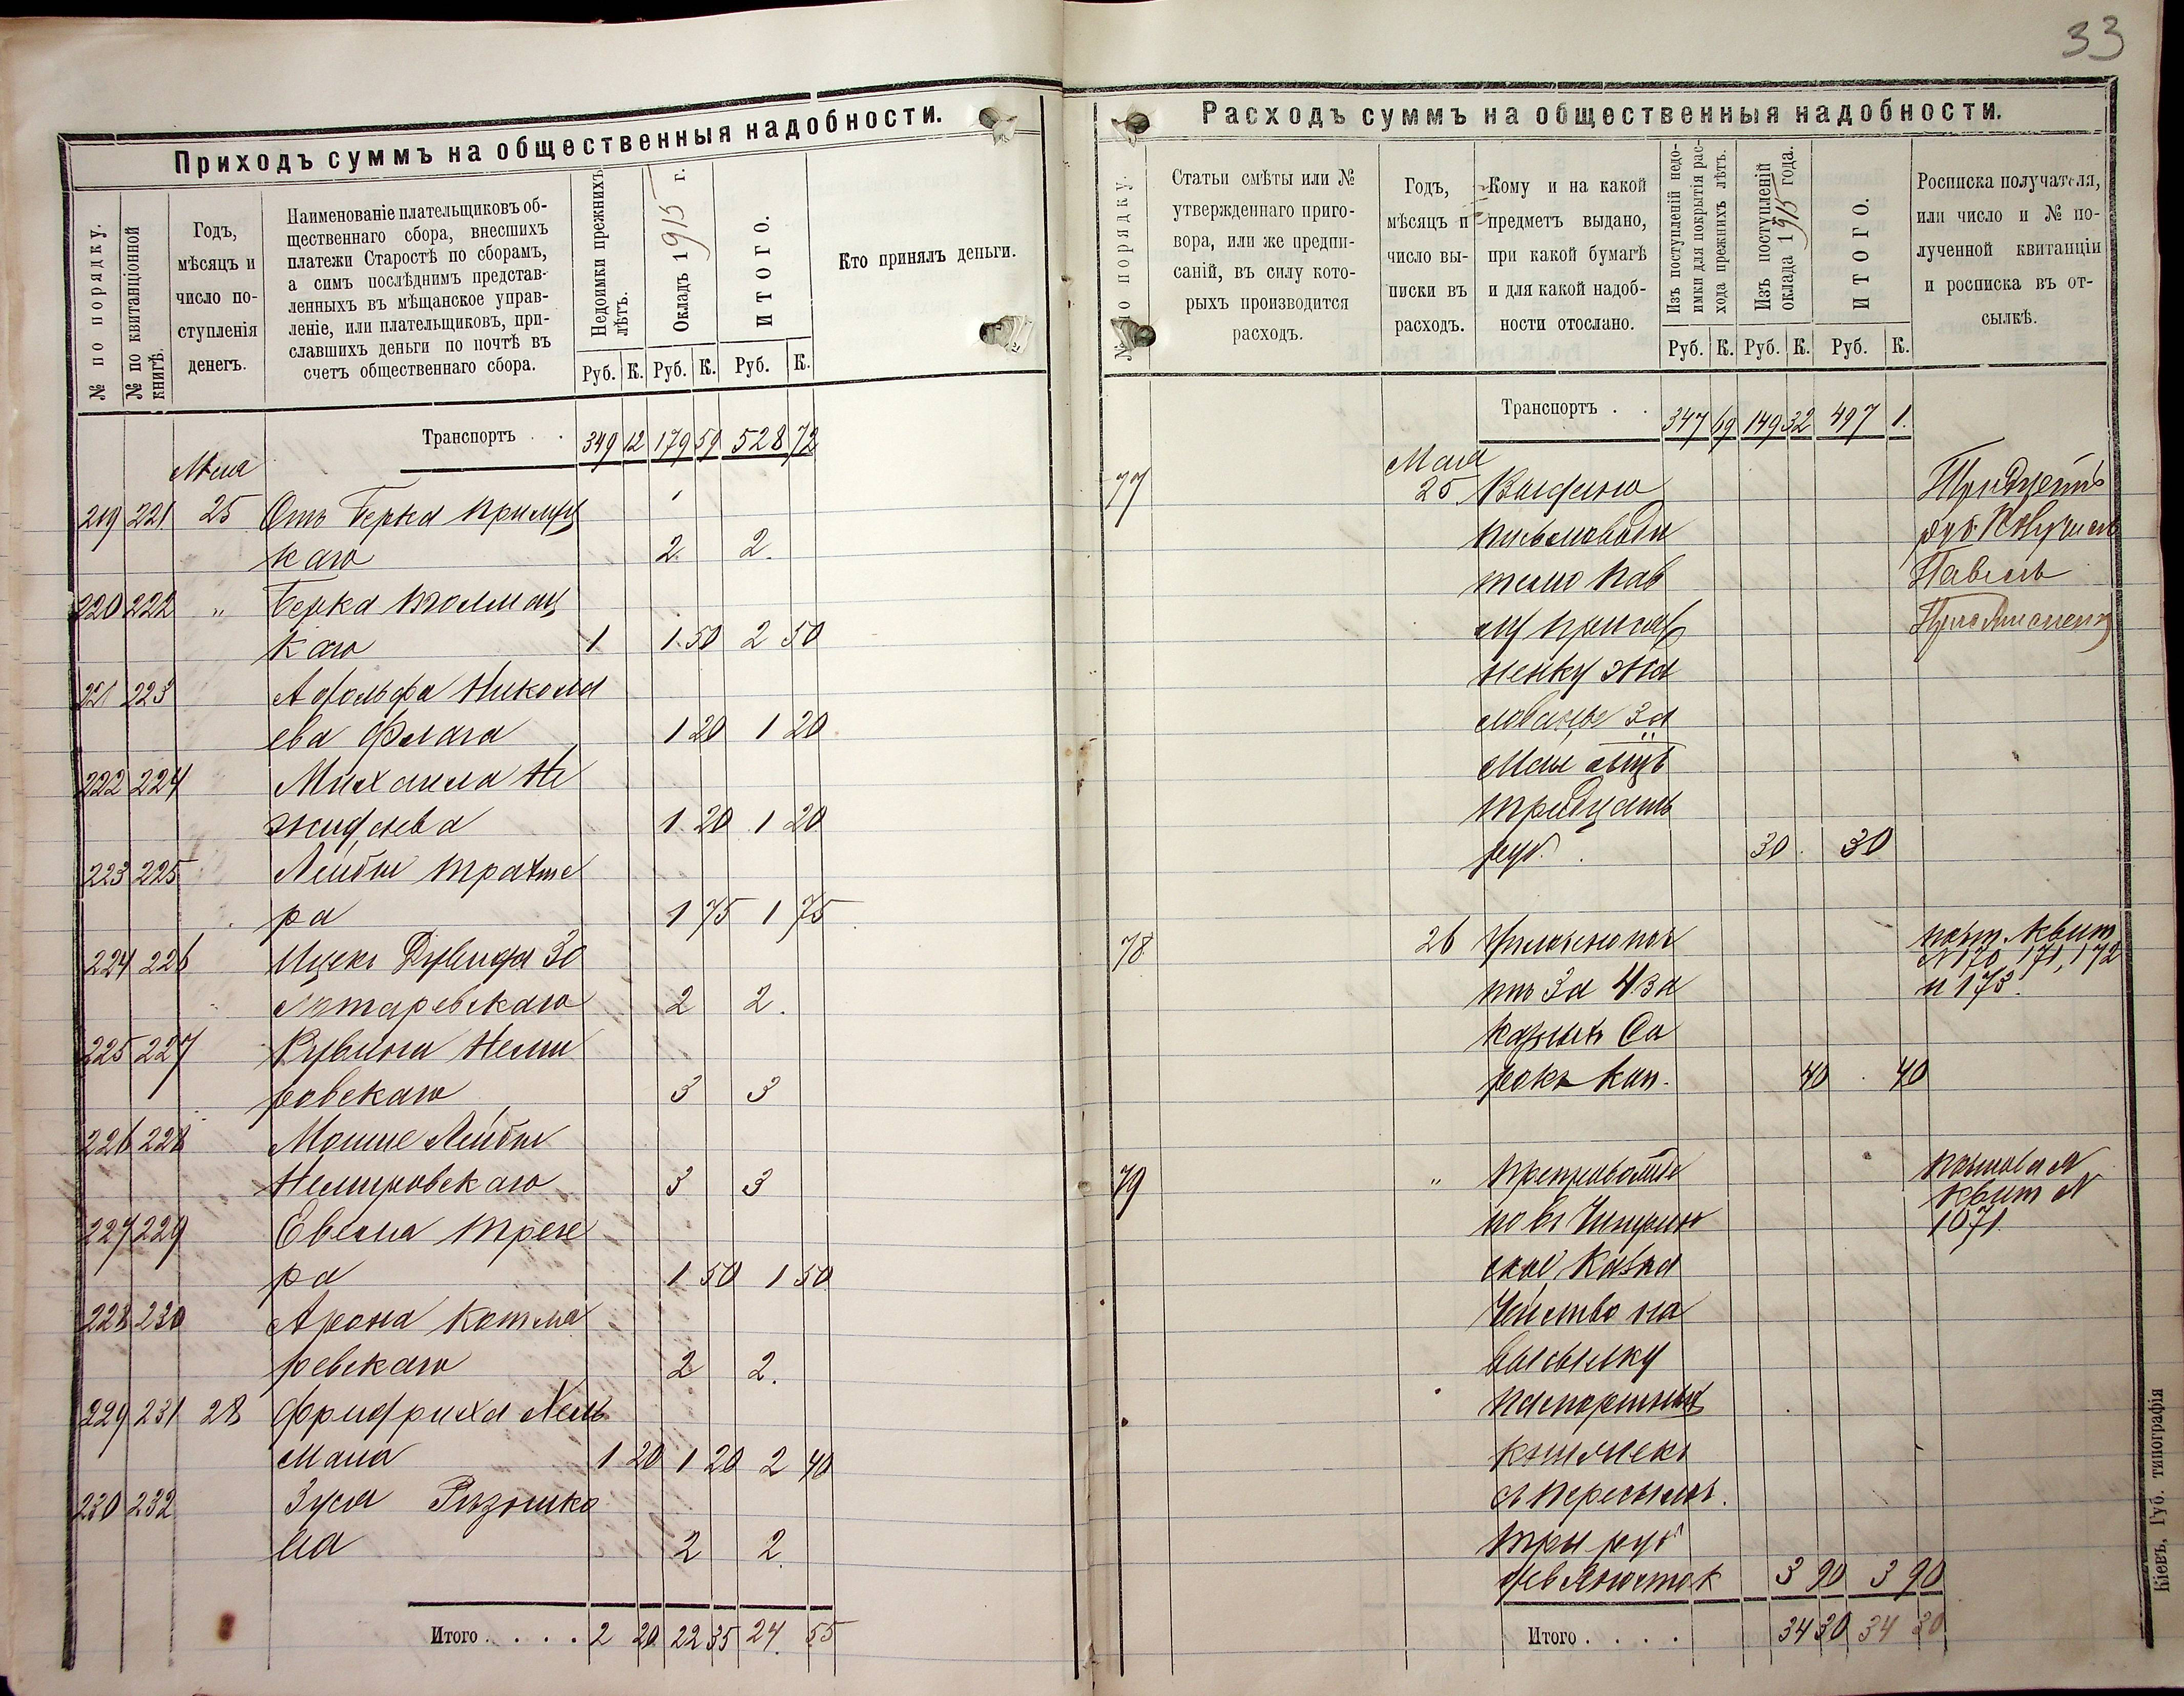 33
Приходъ суммъ на общественныя надобности.
№ по порядку.
№ по квитанціонной книгѣ.
Годъ,
мѣсяцъ и
число по-
ступленія
денегъ.
Наименованіе плательщиковъ об-
щественнаго сбора, внесшихъ
платежи Старостѣ по сборамъ,
а симъ послѣднимъ представ-
ленныхъ въ мѣщанское управ-
леніе, или плательщиковъ, при-
славшихъ деньги по почтѣ въ
счетъ общественнаго сбора.
Недоимки прежнихъ
лѣтъ.
Окладъ 1915 г.
ИТОГО.
Кто принялъ деньги.
Руб. К. Руб. К. Руб. К.
Транспортъ . . 349 12 179 59 528 72
Мая
219 221 25 Отъ Берка
каго 2. 2.
220 222 „ Берка
каго 1 1.50 2 50
221 223 Адольфа Никола
ева Флага 1 20 1 20
222 224 Михаила Не
1.20 1 20
223 225 Лейбы Трахте
ра 1 75 1 75
224 226 Ицекъ
2 2.
225 227 Рувина Неми
ровскаго 3 3
226 228 Мошие Лейбы
Немировскаго 3 3
227 229 Евсела Треге
ра 1 50 1 50
228 230 Арона Котля
ревскаго 2 2.
229 231 28 Фридриха Лей
мана 1 20 1 20 2 40
230 232 Зуся
на 2 2
Итого . . . . 2 20 22 35 24. 55
Расходъ суммъ на общественныя надобности.
№ по порядку.
Статьи смѣты или №
утвержденнаго приго-
вора, или же предпи-
саній, въ силу кото-
рыхъ производится
расходъ.
Годъ,
мѣсяцъ и
число вы-
писки въ
расходъ.
Кому и на какой
предметъ выдано,
при какой бумагѣ
и для какой надоб-
ности отослано.
Изъ поступленій недо-
имки для покрытія рас-
хода прежнихъ лѣтъ.
Изъ поступленій
оклада 1915 года.
ИТОГО.
Росписка получателя,
или число и № по-
лученной квитанціи
и росписка въ от-
сылкѣ.
Руб. К. Руб. К. Руб. К.
Транспортъ . . 347 69 149 32 497 1.
Мая
77 25 Выдано Тридцать
письмоводи руб. получилъ
телю Пав Павелъ
лу
ненку жа
лованье за
Май мѣц
тридцать
руб. 30 . 30
78. 26 Уплачено поч почт. квит
тѣ за 4 за №170, 171, 172
казныхъ Со и 173.
рокъ коп. 40 . 40
79 „ Препровожде Почтовая
но въ Чигрин квит №
ское Казна 1071.
чейство на
высылку
паспортныхъ
книжекъ
съ пересылк.
три руб
девяносто к 3 90 3 90
Итого . . . . 34 30 34 30
Кіевъ, Губ. типографія